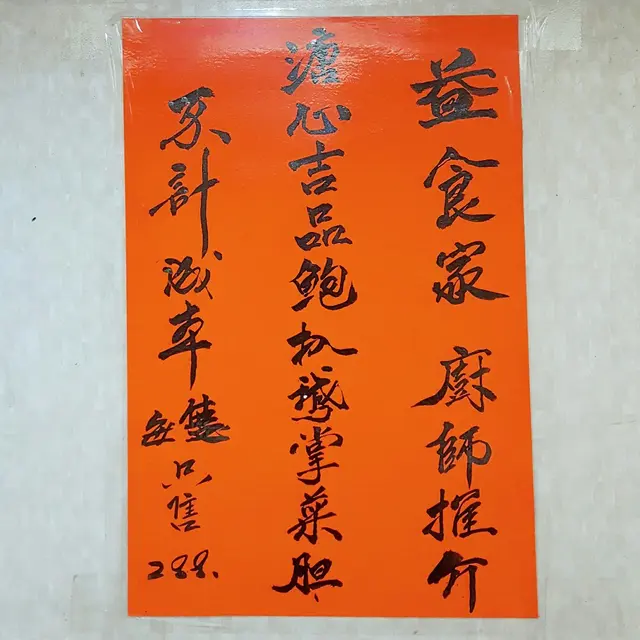 益食家 廚師推介
溏心吉品鮑扒鵝掌菜胆
不計成本每隻只售288.